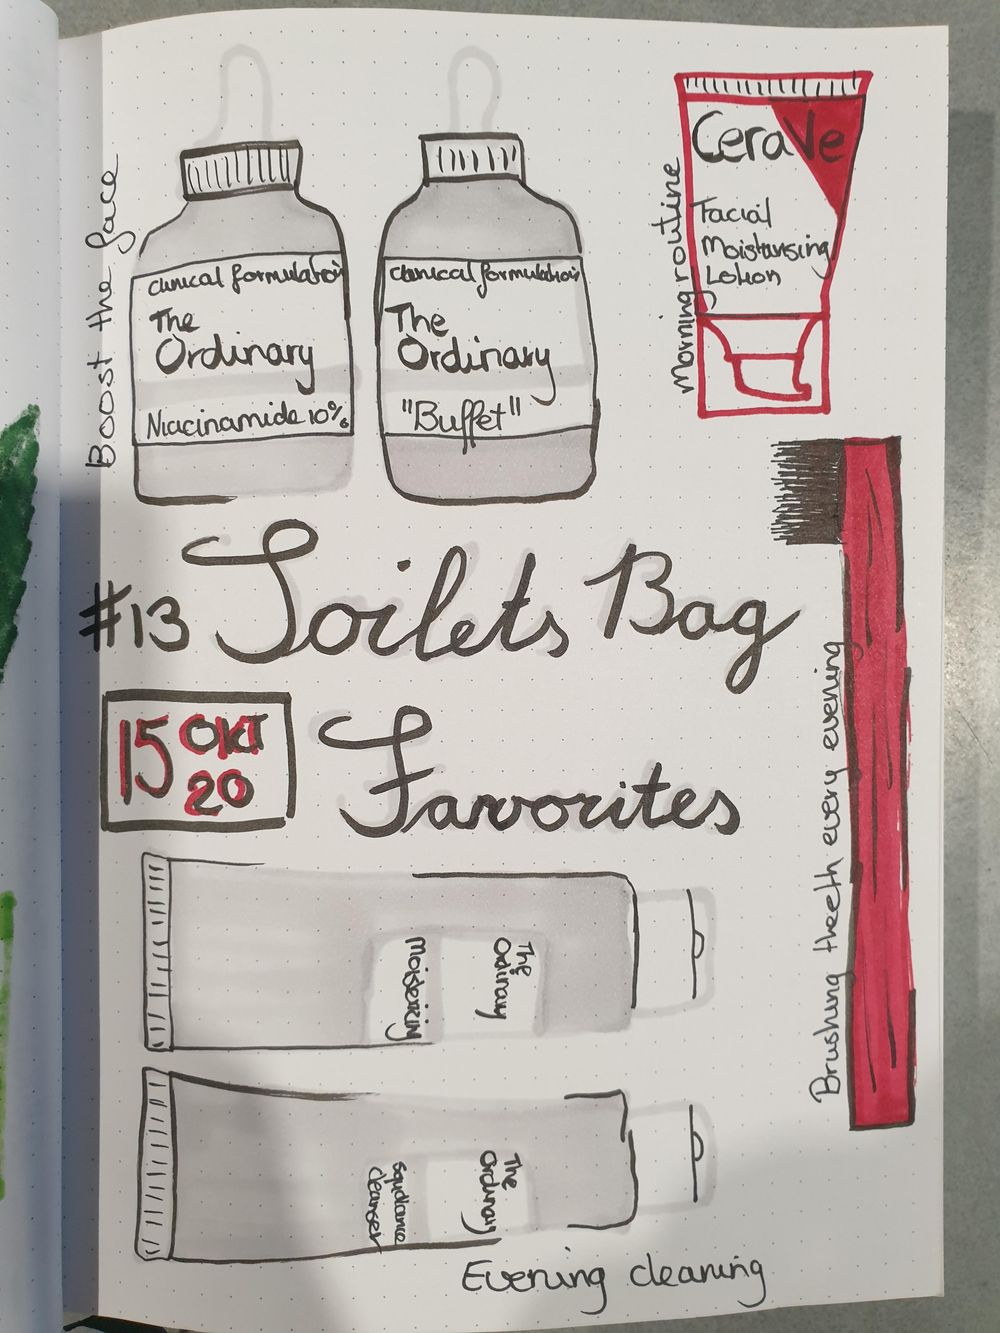 Boost the face
clinical formulation
The
Ordinary
Niacinamide 10%
clinical formulation
The
Ordinary
"Buffet"
Morning routine
CeraVe
Facial
Moistursing
Lotion
#13 Toilets Bag
15 OKT
20
Favorites
Brushing theeth every evening
The
Odinary
The
Ordinary
squalane
cleanser
Evening cleaning